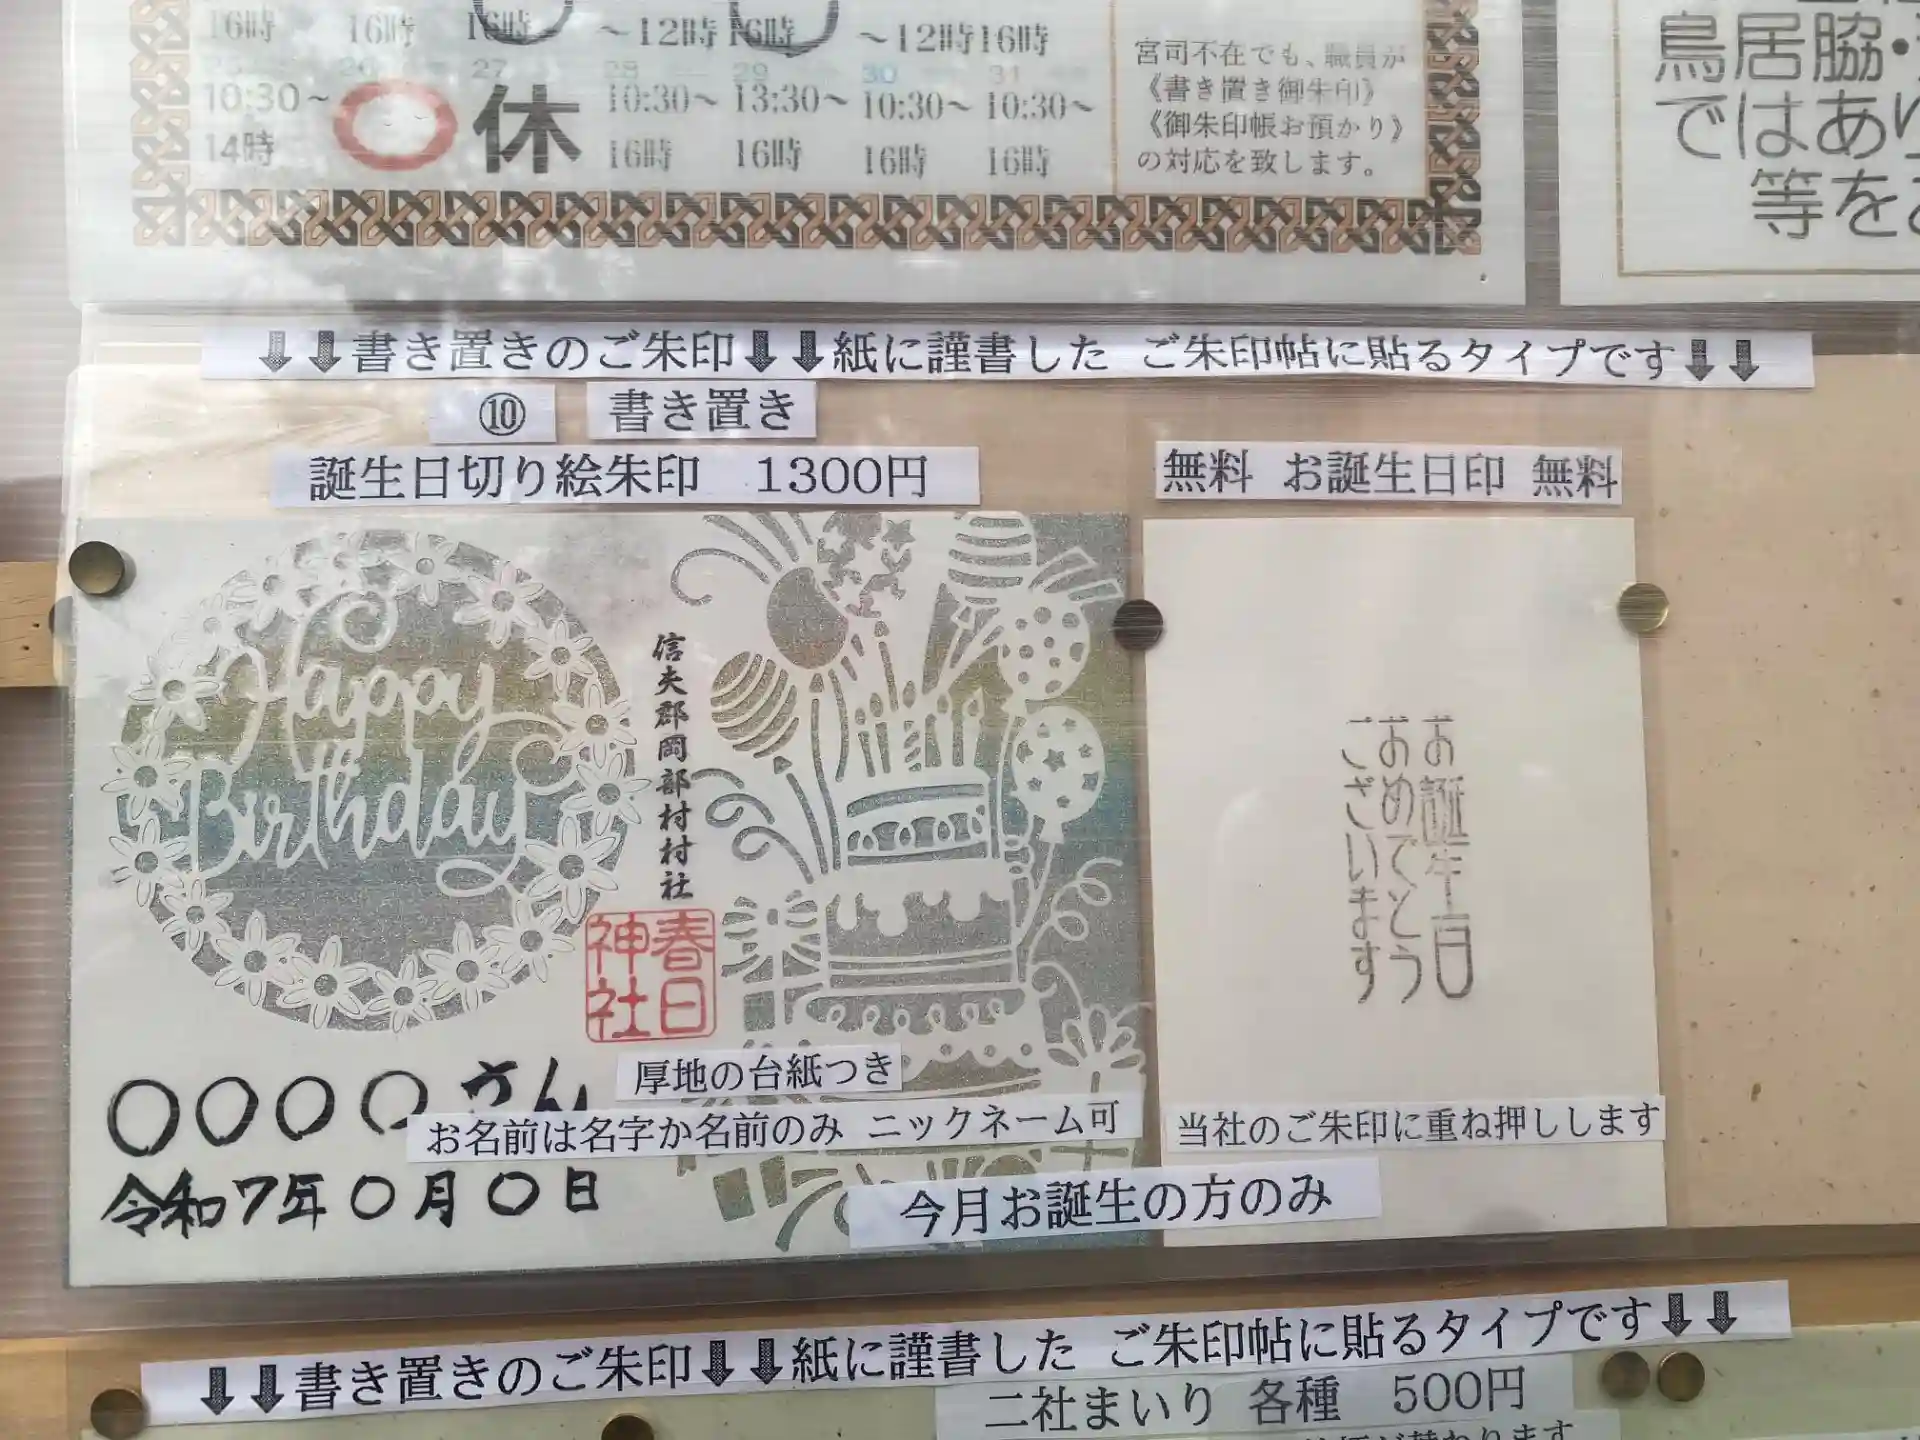 16時 16時 16時 ～12時 16時 ～12時 16時
26 27 28 29 30 31
10:30～ 休 10:30～ 13:30～ 10:30～ 10:30～
14時 16時 16時 16時 16時
宮司不在でも、職員が
《書き置き御朱印》
《御朱印帳お預かり》
の対応を致します。
鳥居脇・
ではあり
等を
⬇⬇書き置きのご朱印⬇⬇紙に謹書した ご朱印帖に貼るタイプです⬇⬇
⑩ 書き置き
誕生日切り絵朱印 1300円
Happy
Birthday
信夫郡岡部村村社
春日
神社
〇〇〇〇さん
令和7年〇月〇日
厚地の台紙つき
お名前は名字か名前のみ ニックネーム可
無料 お誕生日印 無料
お誕生日
おめでとう
ございます
当社のご朱印に重ね押しします
今月お誕生の方のみ
⬇⬇書き置きのご朱印⬇⬇紙に謹書した ご朱印帖に貼るタイプです⬇⬇
二社まいり 各種 500円